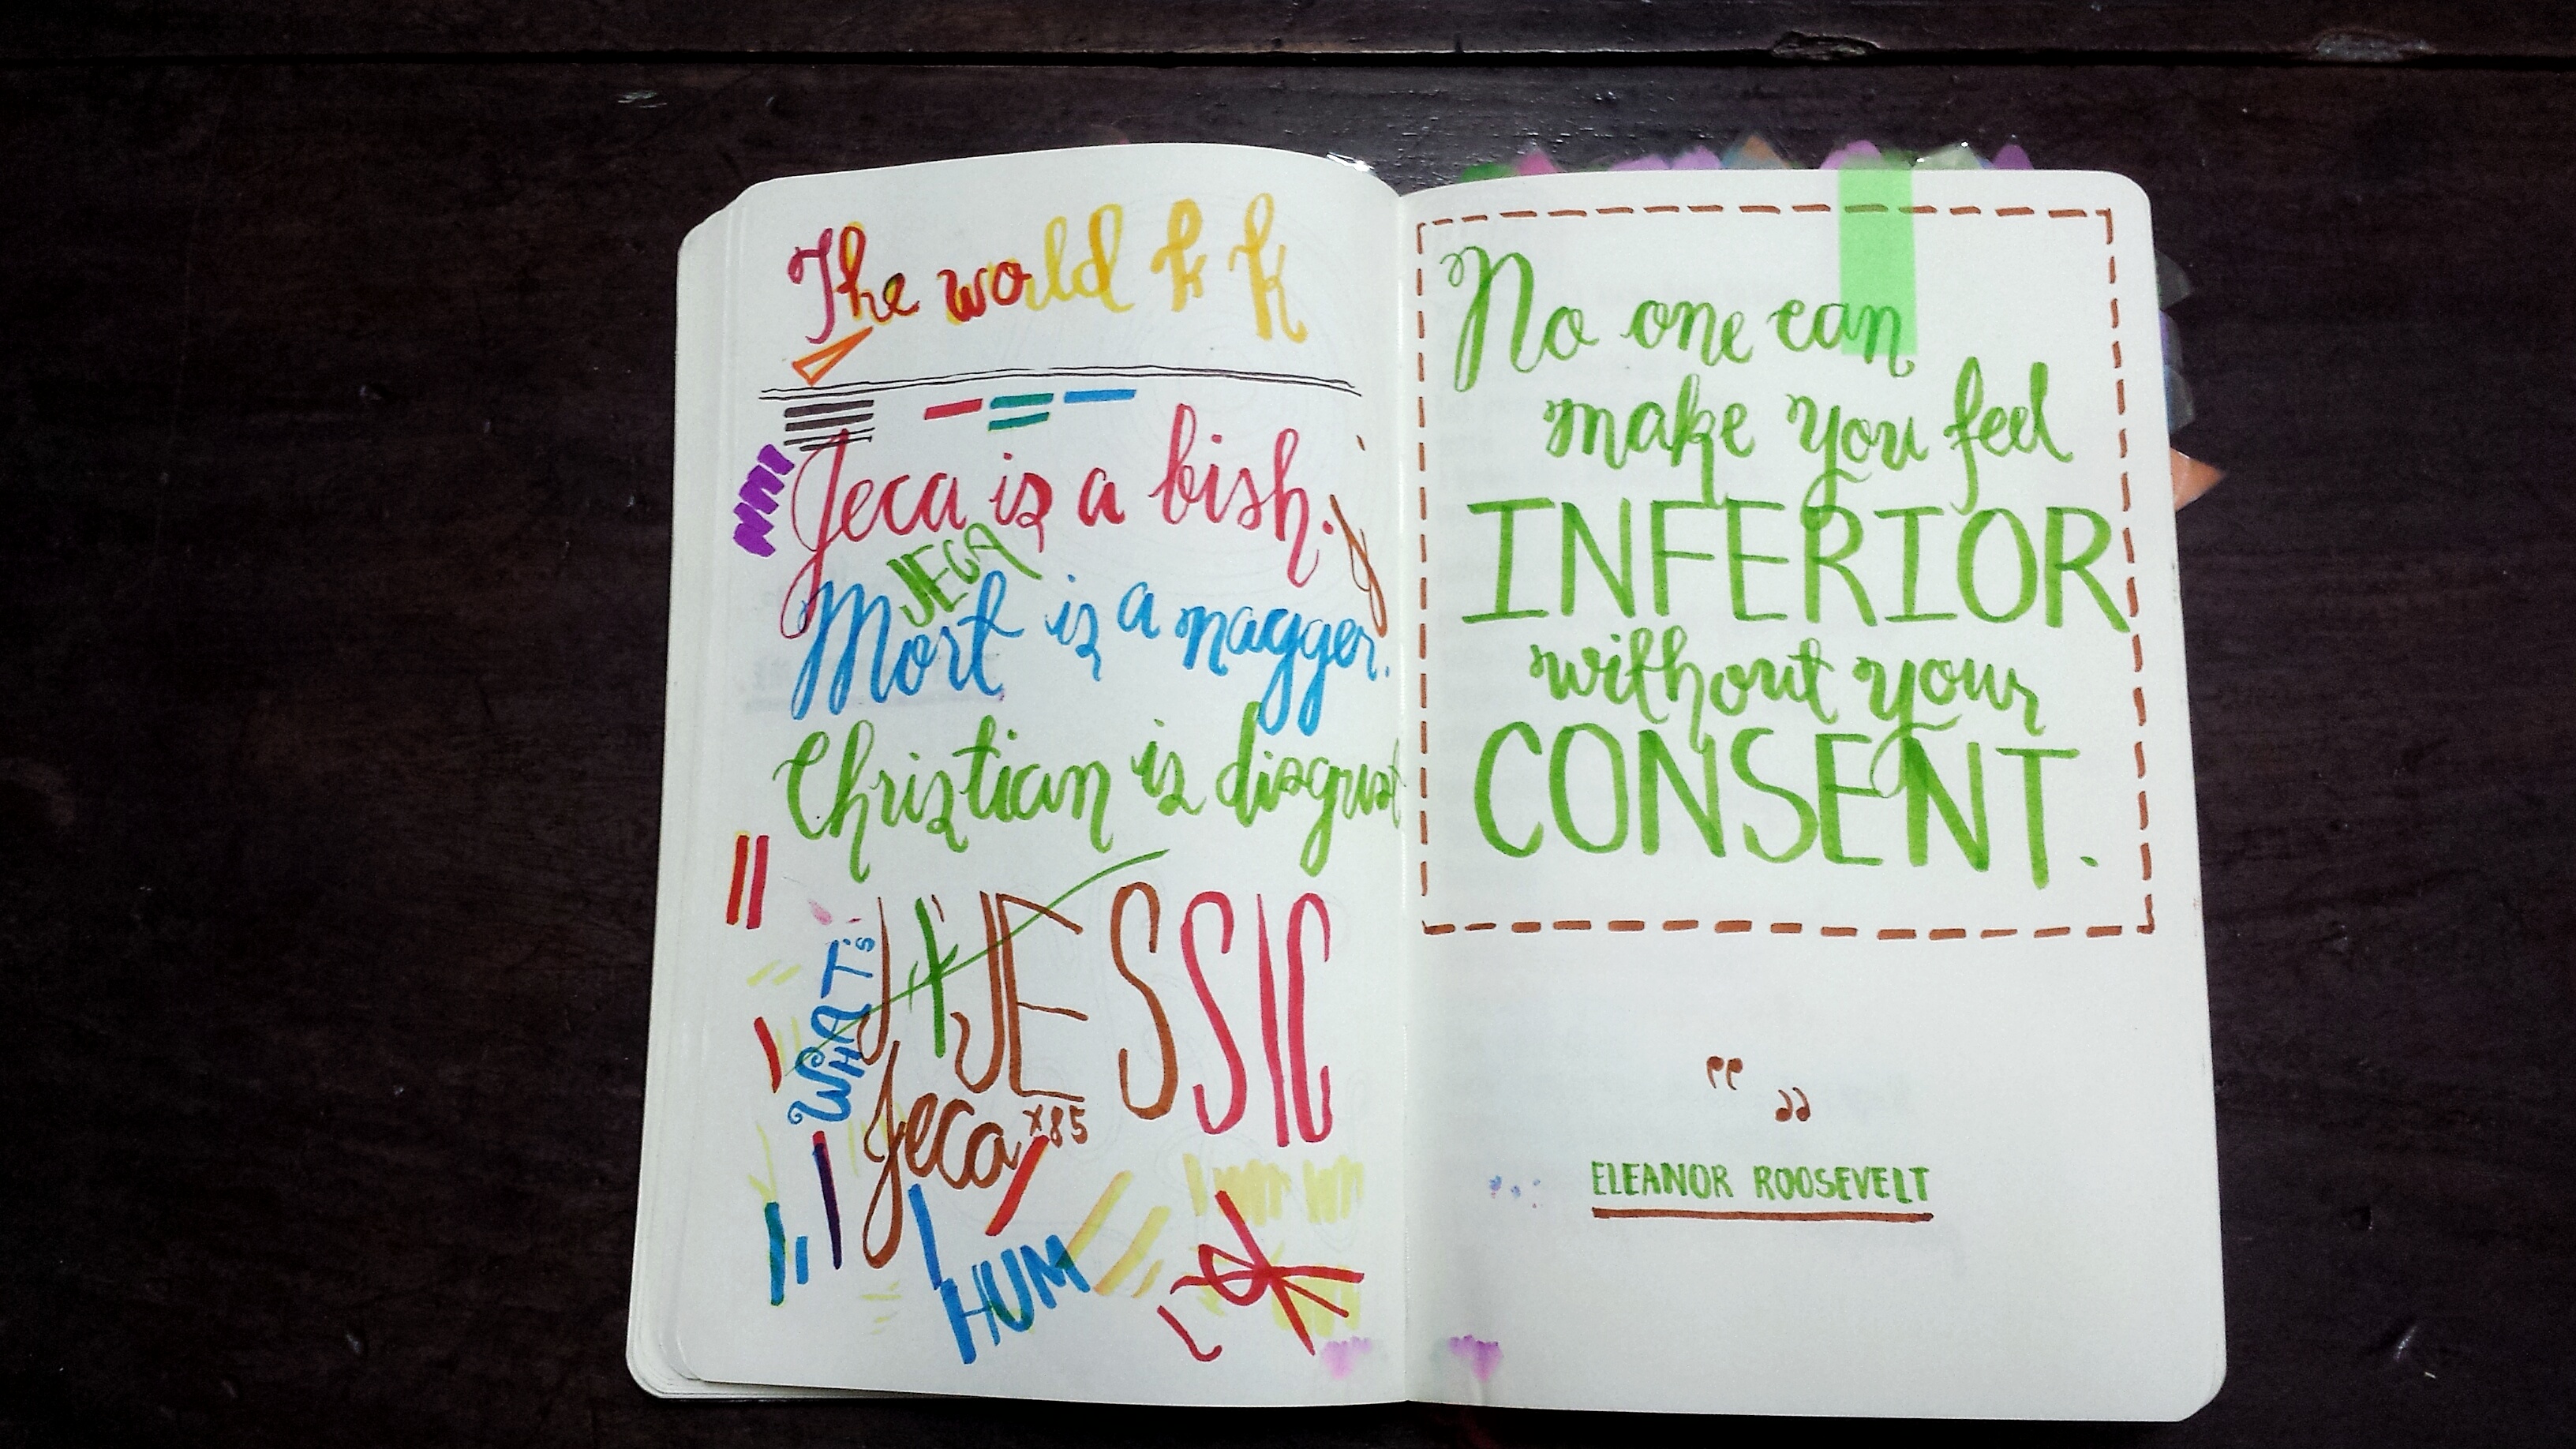 The world k k
Jeca is a bish.
JECA
Mort is a nagger.
Christian is disgust
WHAT's
J + JESSIC
Jeca x85
HUM
No one can
make you feel
INFERIOR
without your
CONSENT.
ELEANOR ROOSEVELT